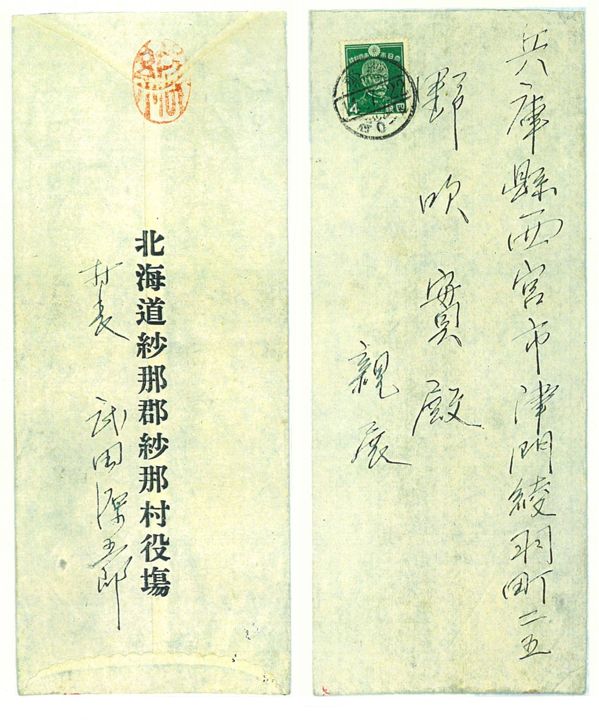 兵庫縣西宮市津門綾羽町二五
野吹實殿
親展
4
北海道紗那郡紗那村役塲
村長 武田源五郎